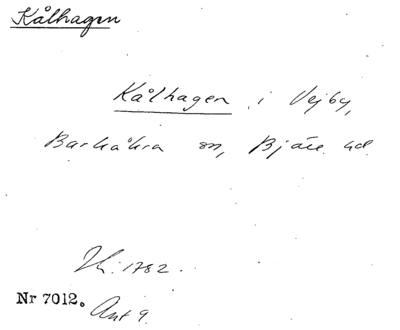 Kålhagen
Kålhagen i Vejby,
Barkåkra sn, Bjäre hd.
Jk. 1782.
Nr 7012.
Akt 9.